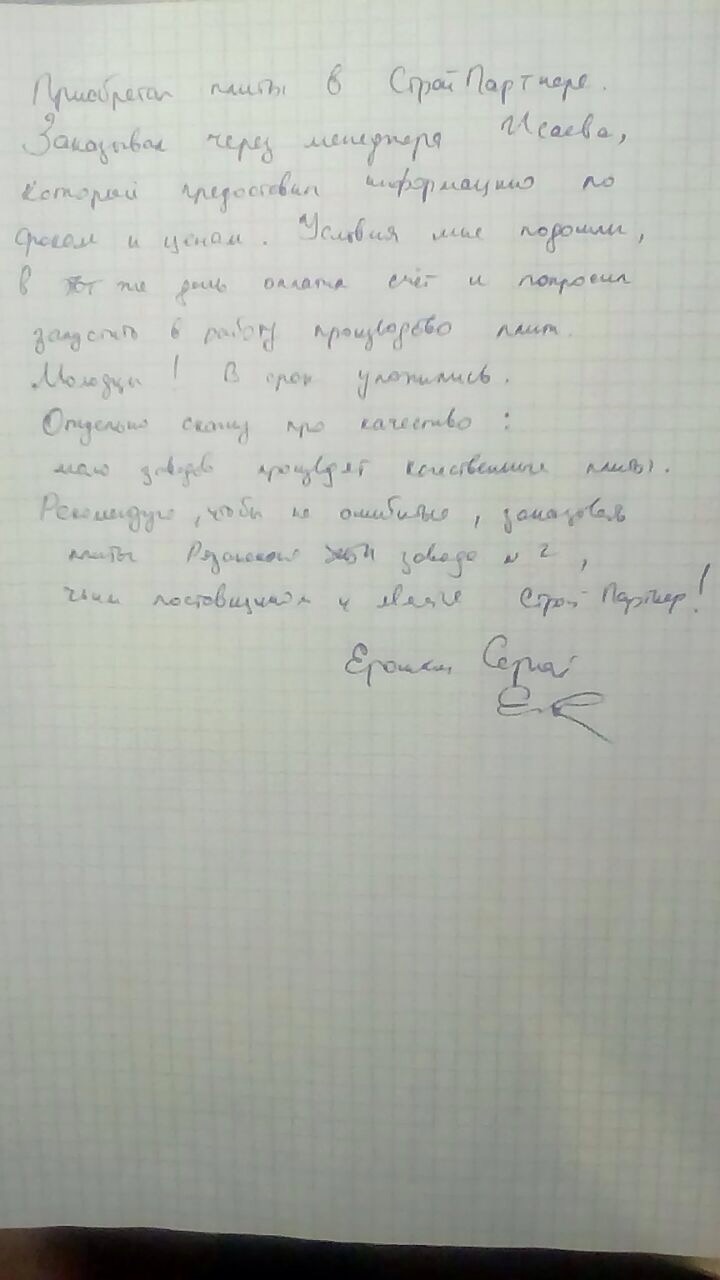 Приобретал плиты в СтройПартнере.
Заказывал через менеджера Исаева,
который предоставил информацию по
срокам и ценам. Условия мне подошли,
в тот же день оплатил счёт и попросил
запустить в работу производство плит.
Молодцы! В срок уложились.
Отдельно скажу про качество:
мало заводов производят качественные плиты.
Рекомендую, чтобы не ошибиться, заказывать
плиты Рязанского ЖБИ завода №2,
чьим поставщиком и является СтройПартнер!
Сергей